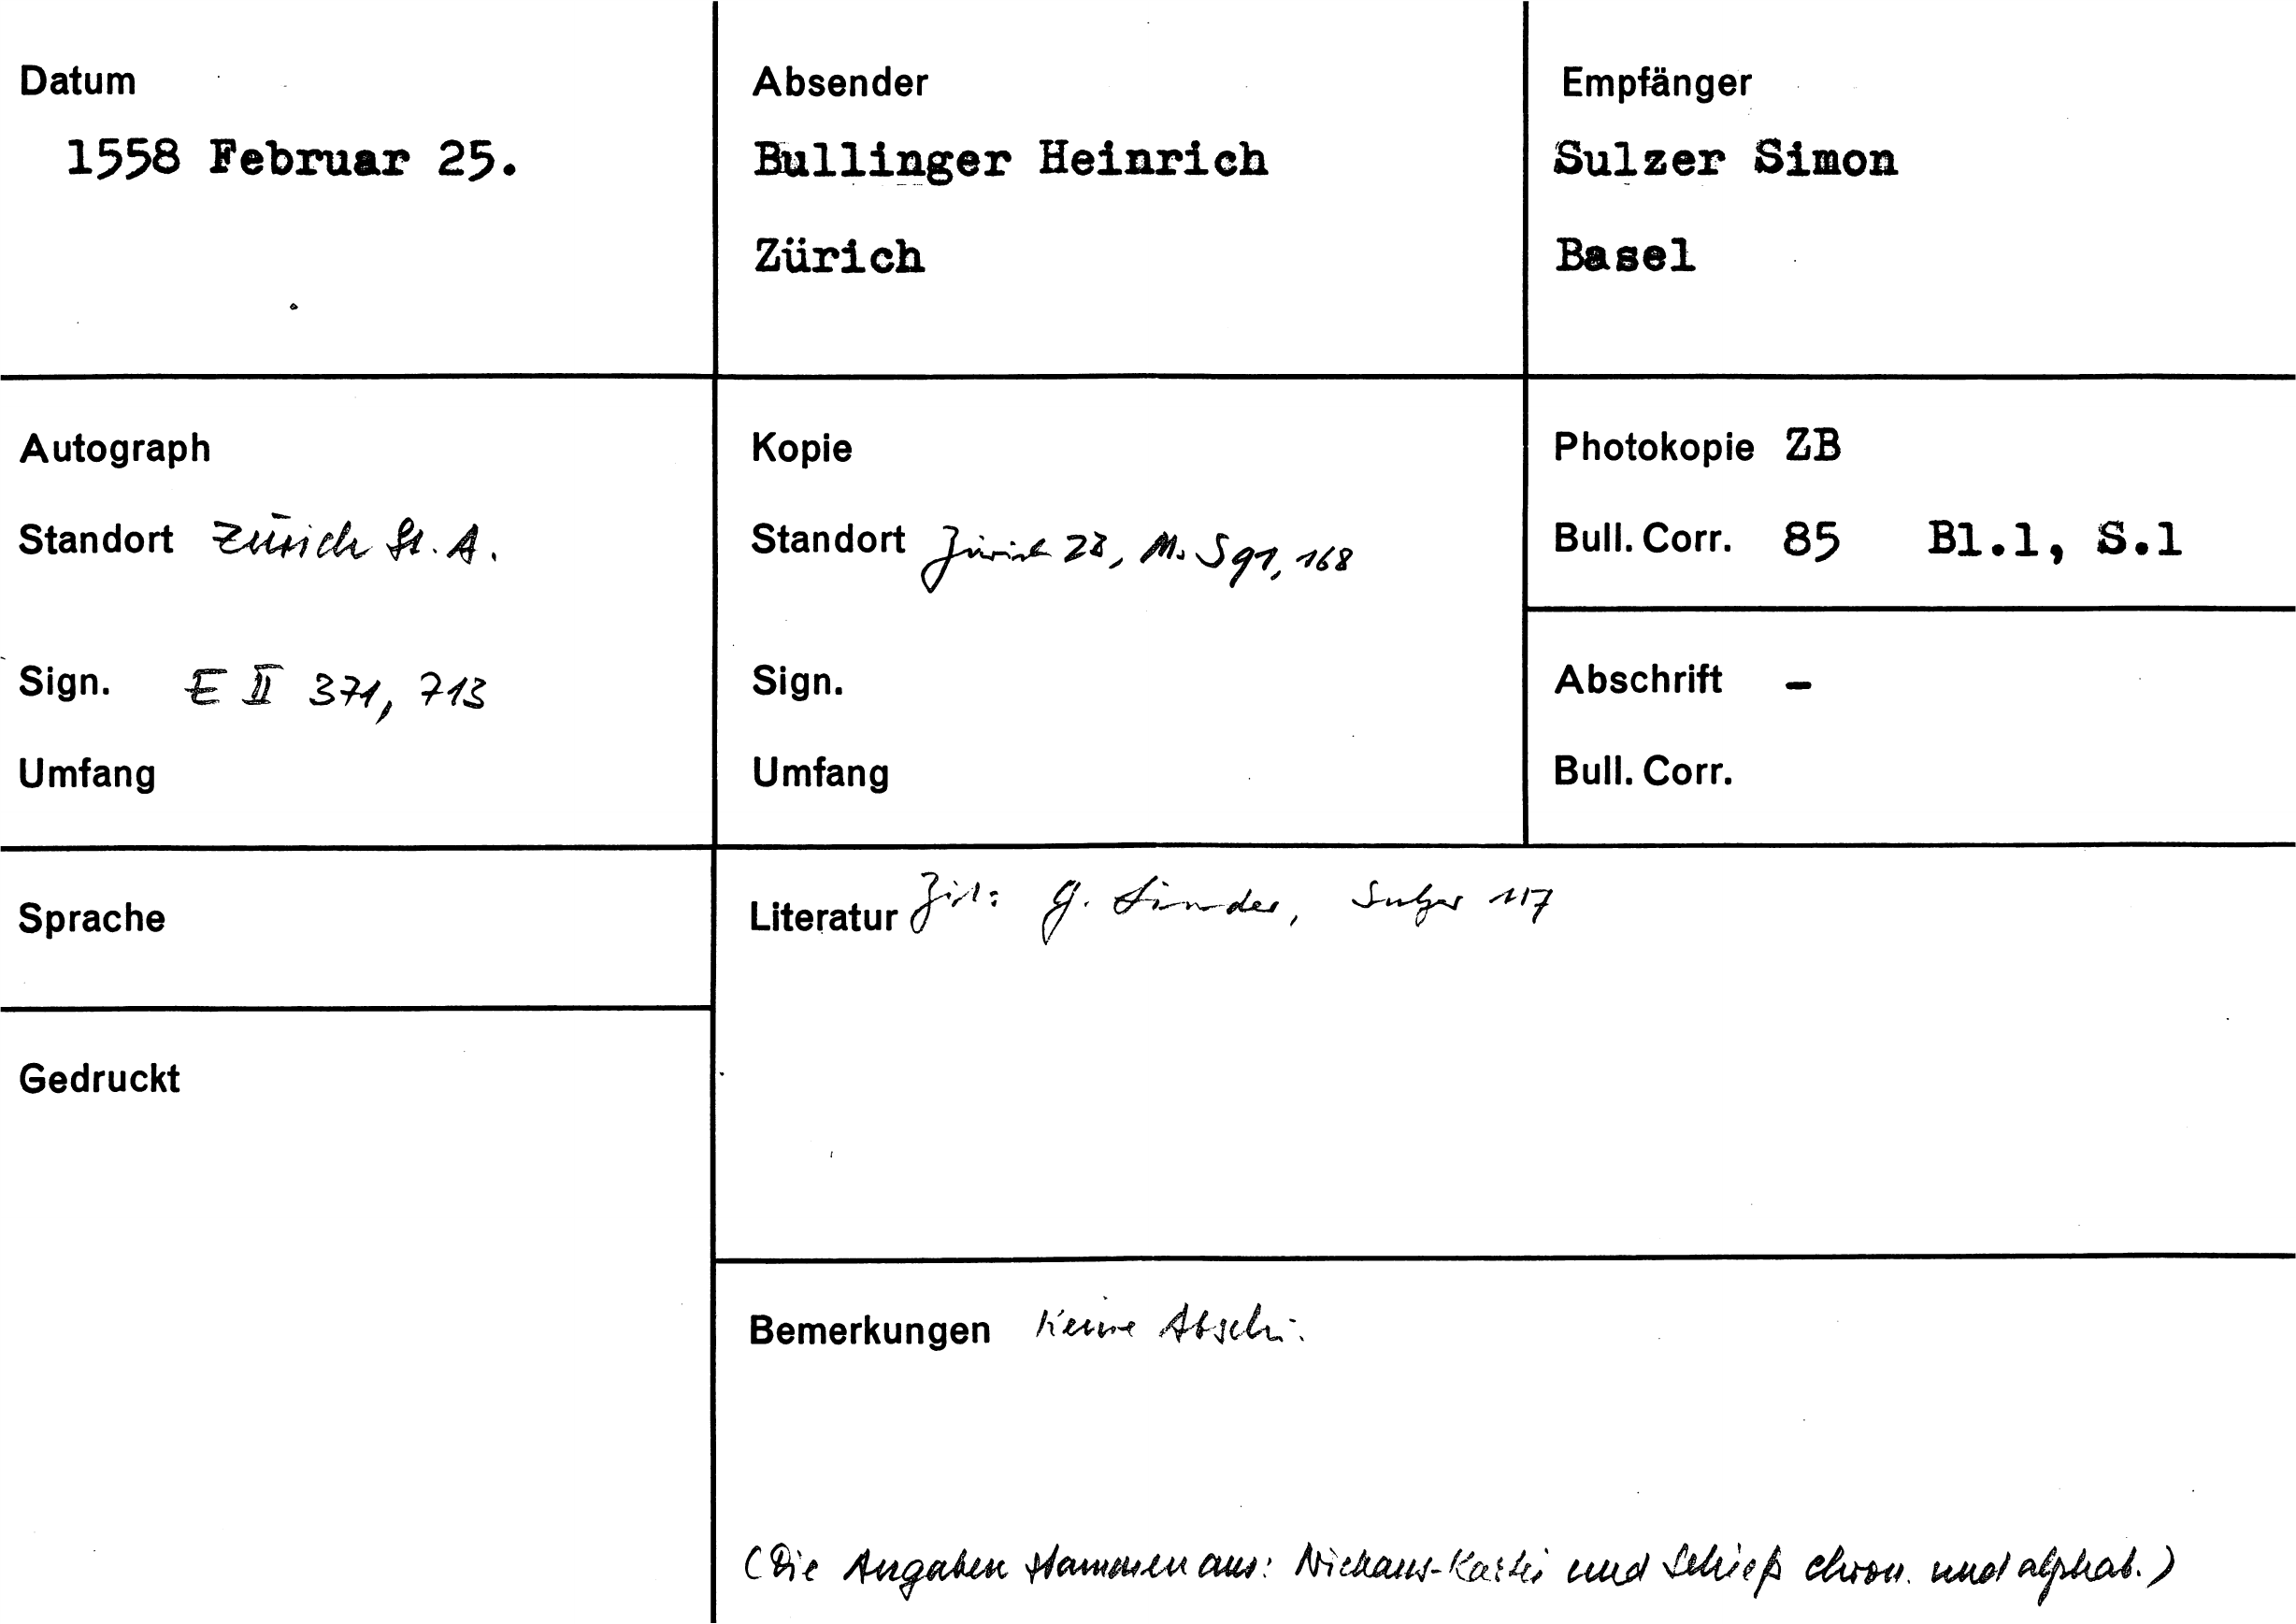 Datum
1558 Februar 25.
Absender
Bullinger Heinrich
Zürich
Empfänger
Sulzer Simon
Basel
Autograph
Standort Zürich St. A.
Sign. E II 371, 713
Umfang
Kopie
Standort Zürich ZB, Ms S 91, 168
Sign.
Umfang
Photokopie ZB
Bull. Corr. 85 Bl.1, S.1
Abschrift -
Bull. Corr.
Sprache
Gedruckt
Literatur Zit: G. Linder, Sulzer 117
Bemerkungen Keine Abschr.
(Die Angaben stammen aus: Niehaus-Kartei und Schieß chron. und alphab.)